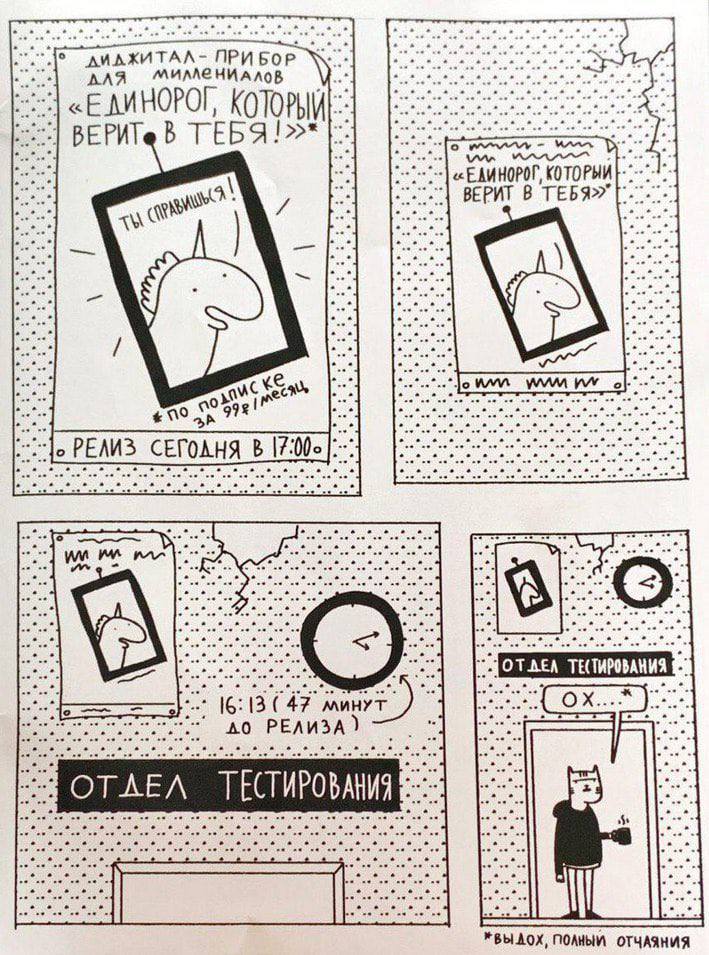 ДИДЖИТАЛ-ПРИБОР
ДЛЯ МИЛЛЕНИАЛОВ
«ЕДИНОРОГ, КОТОРЫЙ
ВЕРИТ В ТЕБЯ!»*
ТЫ СПРАВИШЬСЯ!
* ПО ПОДПИСКЕ
ЗА 99₽/МЕСЯЦ
РЕЛИЗ СЕГОДНЯ В 17:00
«ЕДИНОРОГ, КОТОРЫЙ
ВЕРИТ В ТЕБЯ»*
16:13 (47 МИНУТ
ДО РЕЛИЗА)
ОТДЕЛ ТЕСТИРОВАНИЯ
ОТДЕЛ ТЕСТИРОВАНИЯ
ОХ...*
*ВЫДОХ, ПОЛНЫЙ ОТЧАЯНИЯ